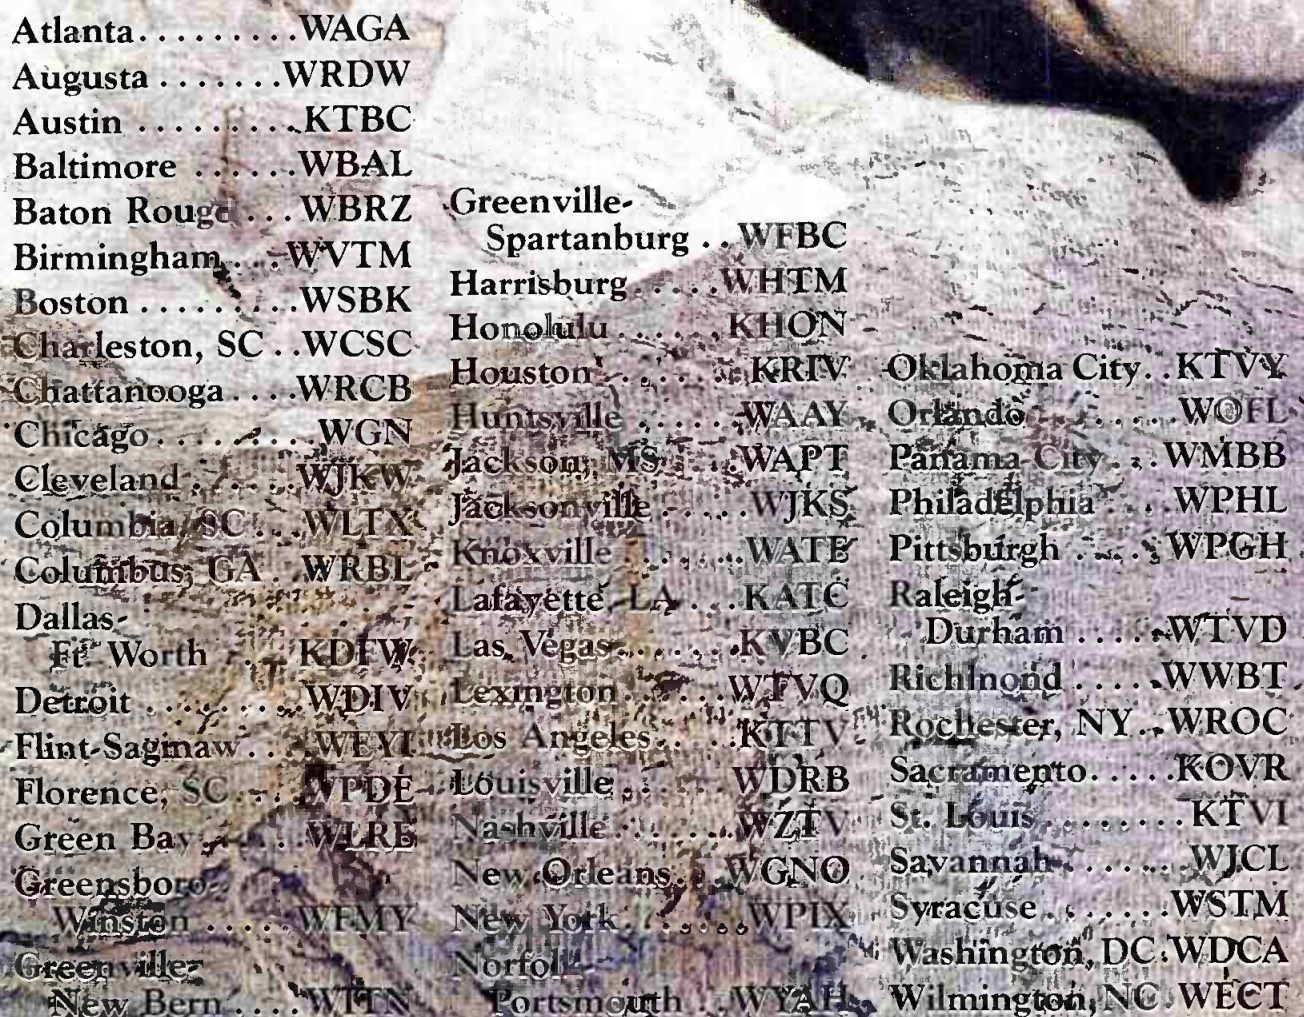 Atlanta.........WAGA
Augusta.......WRDW
Austin.........KTBC
Baltimore......WBAL
Baton Rouge...WBRZ
Birmingham...WVTM
Boston.........WSBK
Charleston, SC..WCSC
Chattanooga....WRCB
Chicago.........WGN
Cleveland.......WJKW
Columbia, SC...WLTX
Columbus, GA..WRBL
Dallas-
Ft. Worth....KDFW
Detroit.........WDIV
Flint-Saginaw...WEYI
Florence, SC...WPDE
Green Bay.....WLRE
Greensboro-
Winston.....WFMY
Greenville-
New Bern....WITN
Greenville-
Spartanburg..WFBC
Harrisburg.....WHTM
Honolulu......KHON
Houston.......KRIV
Huntsville......WAAY
Jackson, MS....WAPT
Jacksonville.....WJKS
Knoxville......WATE
Lafayette, LA...KATC
Las Vegas......KVBC
Lexington.....WTVQ
Los Angeles.....KTTV
Louisville......WDRB
Nashville......WZTV
New Orleans..WGNO
New York......WPIX
Norfolk-
Portsmouth..WYAH
Oklahoma City..KTVY
Orlando.......WOFL
Panama City...WMBB
Philadelphia....WPHL
Pittsburgh.....WPGH
Raleigh-
Durham.....WTVD
Richmond.....WWBT
Rochester, NY..WROC
Sacramento.....KOVR
St. Louis........KTVI
Savannah......WJCL
Syracuse.......WSTM
Washington, DC.WDCA
Wilmington, NC.WECT